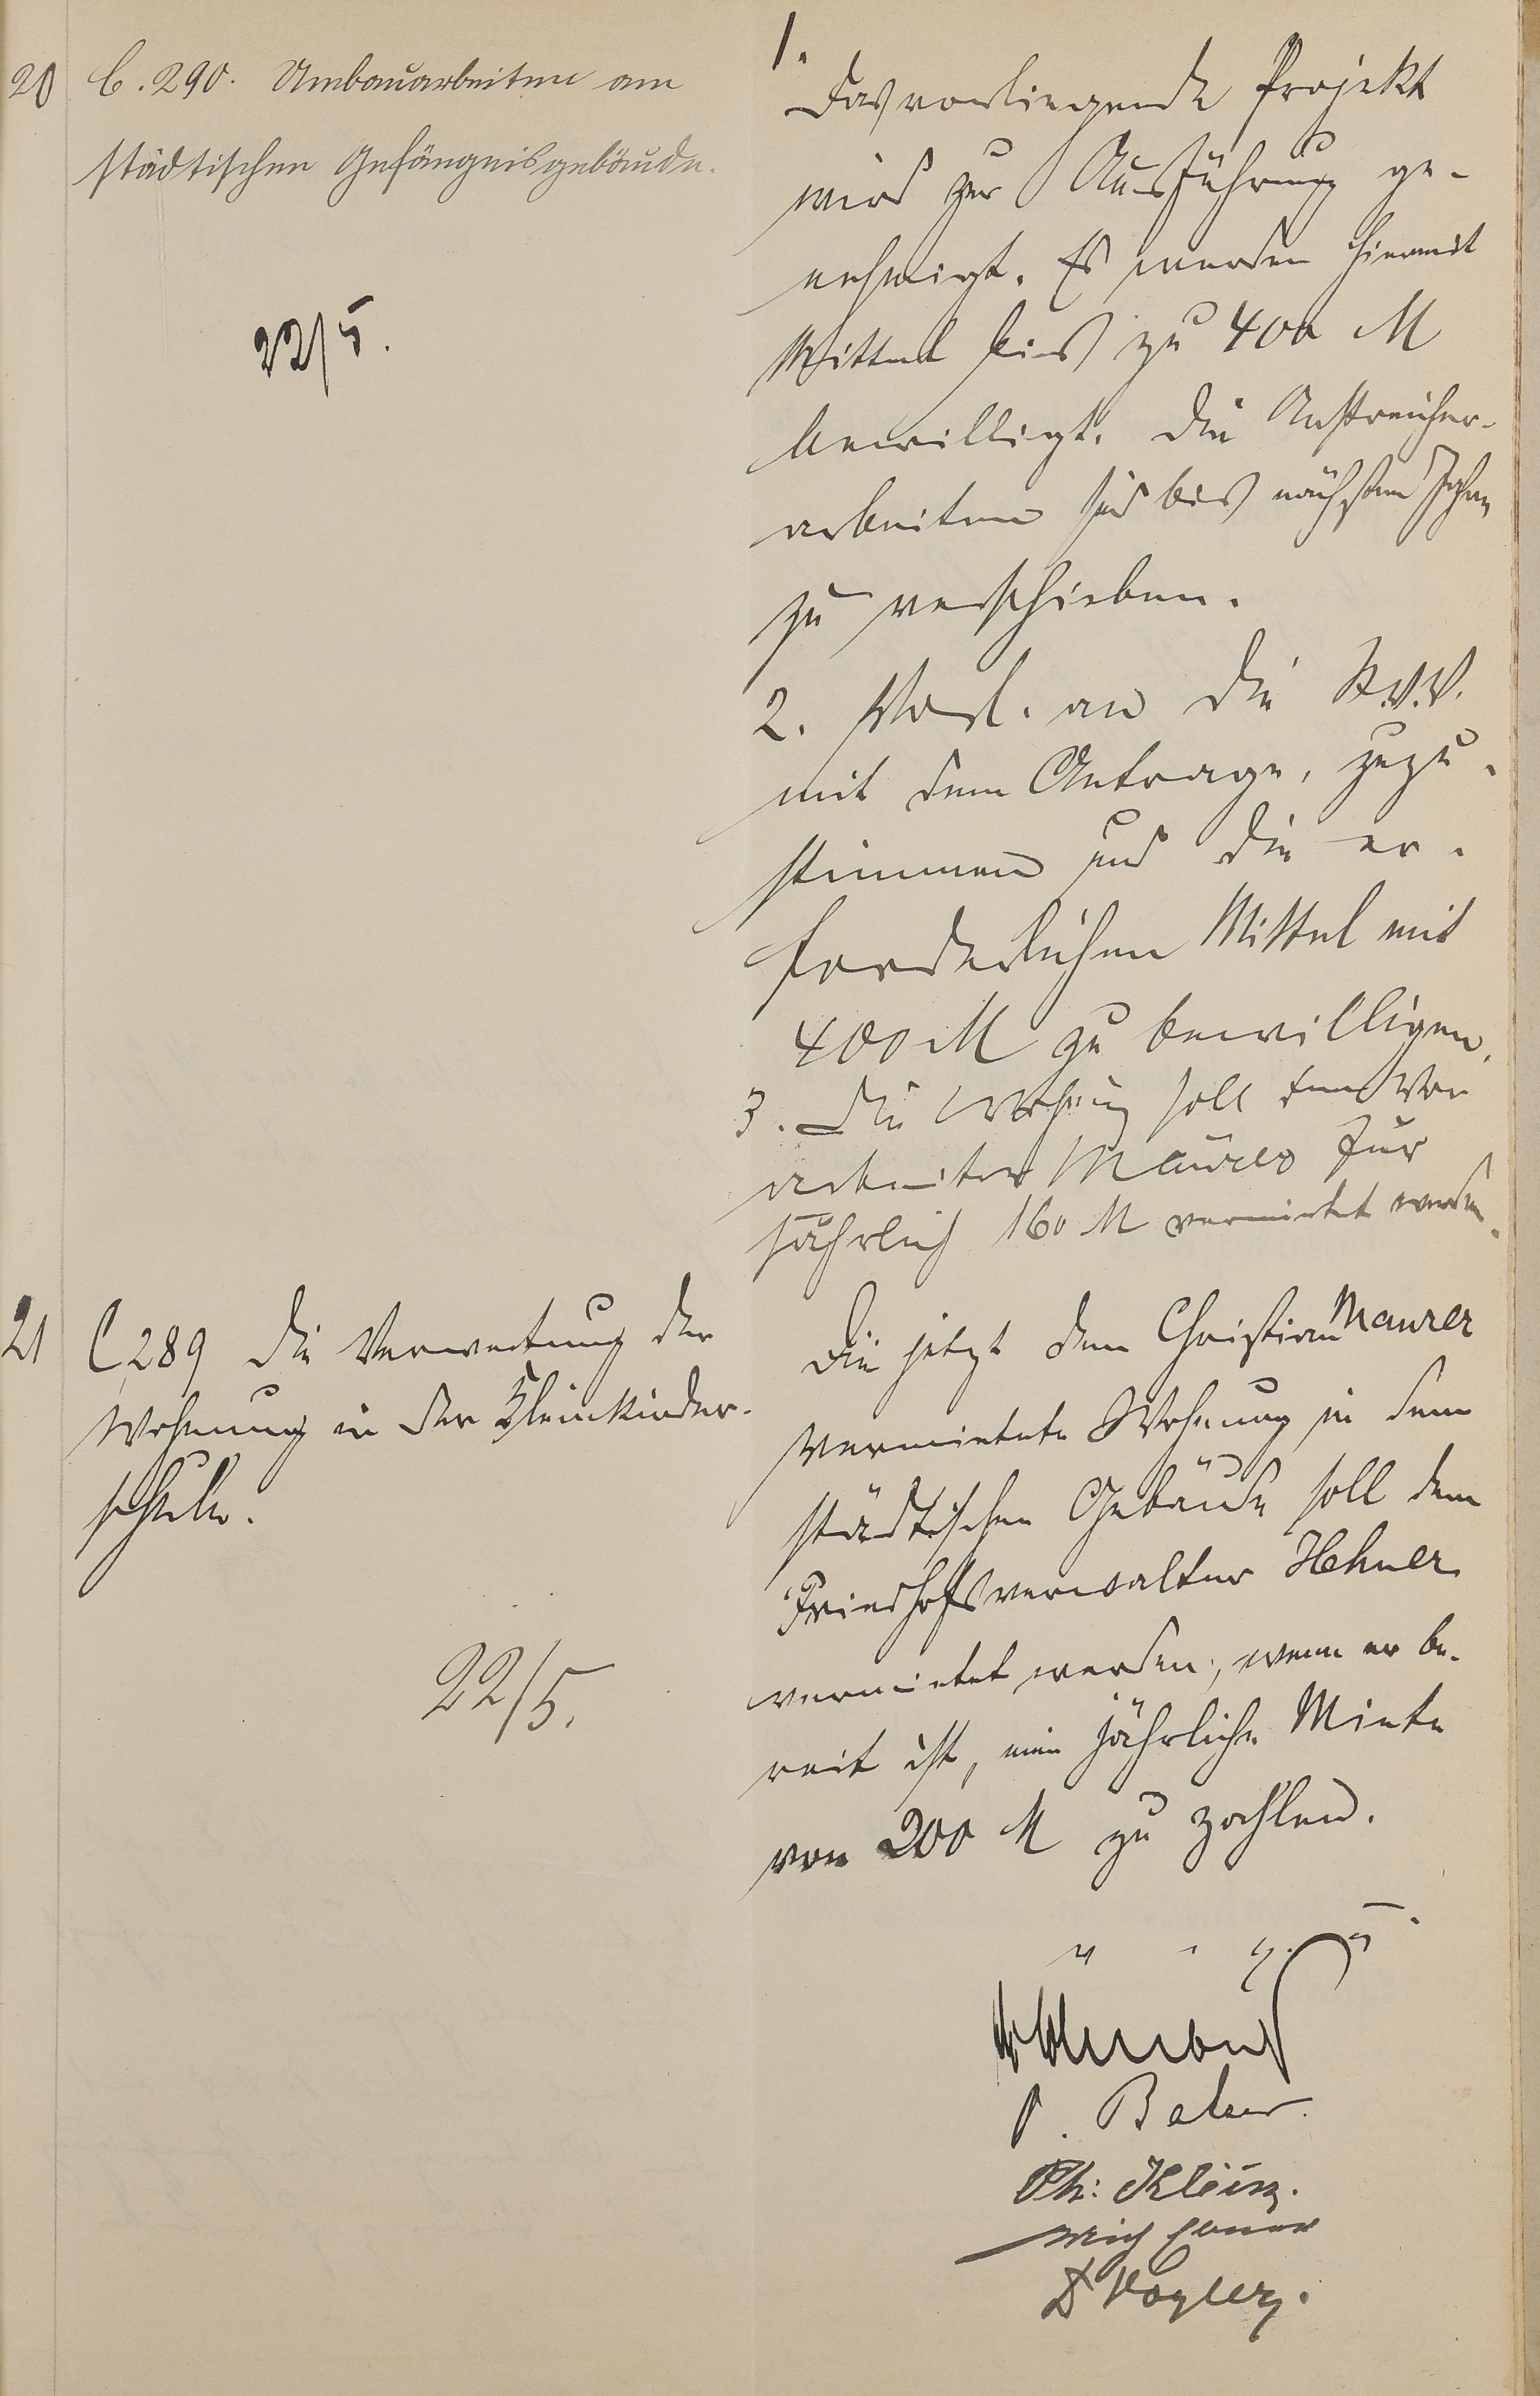 20 C. 290. Umbauarbeiten am
städtischen Gefängnisgebäude.
22/5.
1.
Das vorliegende Projekt
wird zur Ausführung ge-
nehmigt. Es werden hiermit
Mittel bis zu 400 M
bewilligt. Die Anstreicher-
arbeiten sind bis nächsten Jahres
zu verschieben.
2. Vorl. an die St.V.V.
mit dem Antrage, zuzu-
stimmen und die er-
forderlichen Mittel mit
400 M zu bewilligen.
3. Die Wohnung soll dem Vor
arbeiter Maurer für
jährlich 160 M vermietet werden.
21 C 289 Die Verwertung der
Wohnung in der Kleinkinder-
schule.
22/5.
Die jetzt dem Christian Maurer
vermietete Wohnung in dem
städtischen Gebäude soll dem
Friedhofsverwalter Hehner
vermietet werden, wenn er be-
reit ist, eine jährliche Miete
von 200 M zu zahlen.
v. g. u.
Ph. Klein.
D Vogler.